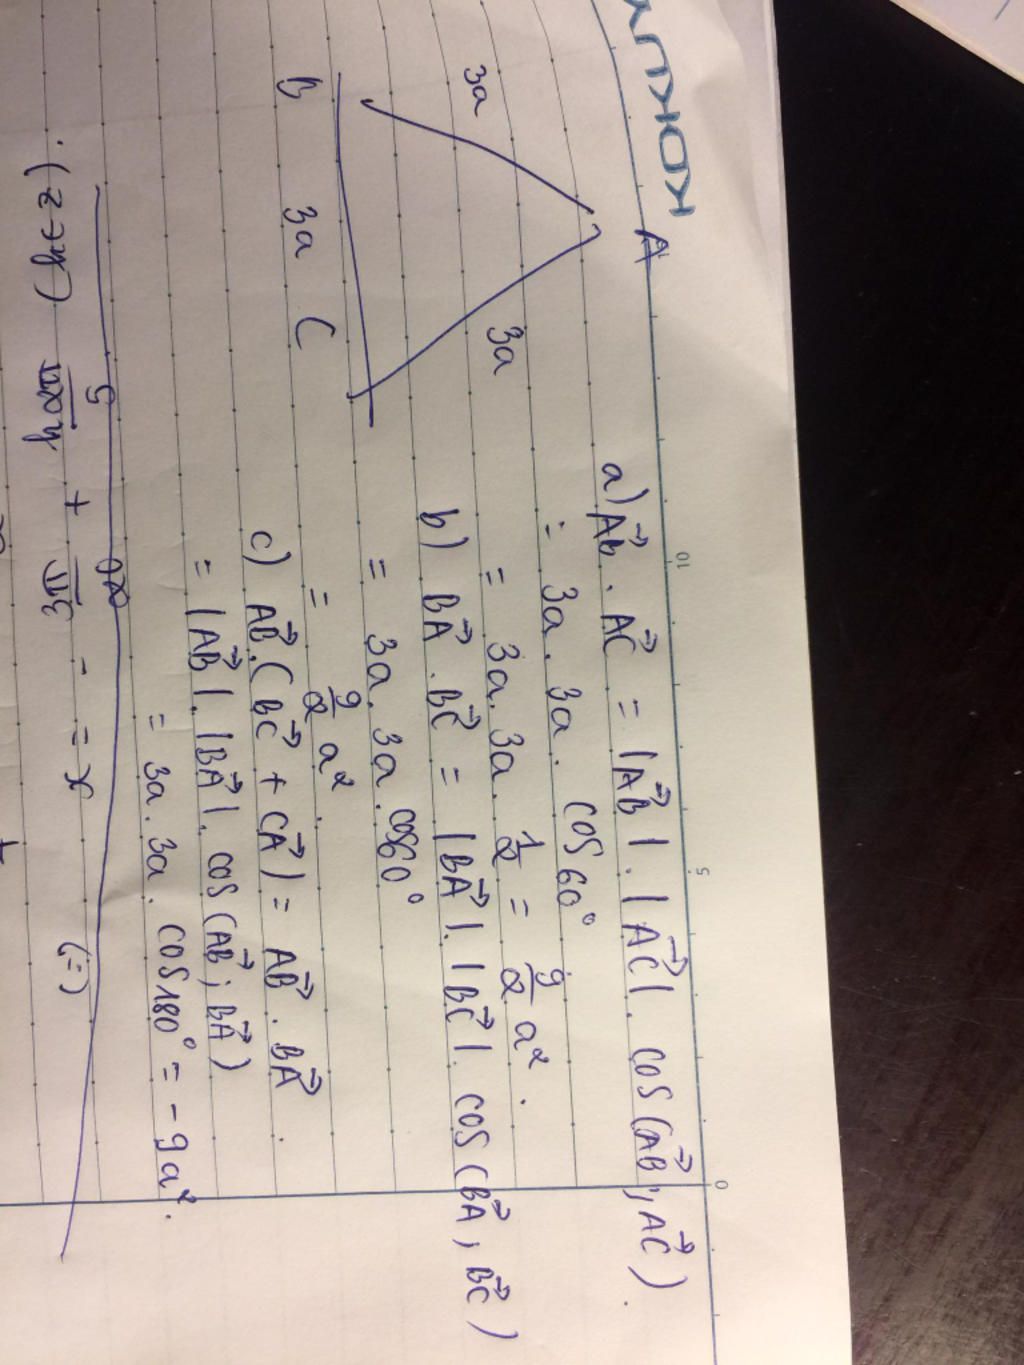 A
3a
3a
B 3a C
a) AB→ . AC→ = |AB→| . |AC→| . cos(AB→; AC→).
= 3a. 3a. cos 60°
= 3a. 3a. 1/2 = 9/2 a².
b) BA→ . BC→ = |BA→|. |BC→|. cos(BA→, BC→)
= 3a. 3a. cos60°
= 9/2 a².
c) AB→.(BC→ + CA→) = AB→ . BA→.
= |AB→|. |BA→|. cos(AB→; BA→)
= 3a. 3a. cos180° = - 9a².
(=)
x = - 3π/20 + k2π/5 (k∈Z).
10
5
0